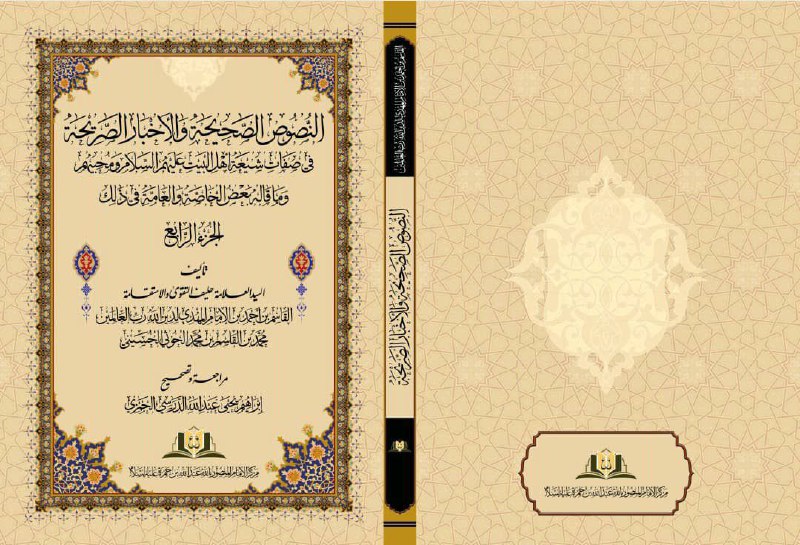 النصوص الصحيحة والأخبار الصريحة
في صفات شيعة أهل البيت عليهم السلام ومحبيهم
وما قاله بعض الخاصة والعامة في ذلك
الجزء الرابع
تأليف
السيد العلامة حليف التقوى والاستقامة
القاسم بن أحمد بن الإمام المهدي لدين الله رب العالمين
محمد بن القاسم بن محمد الحوثي الحسيني
مراجعة وتصحيح
إبراهيم يحيى عبدالله الدرسي الحمزي
مركز الإمام المنصور بالله عبدالله بن حمزة عليه السلام
القاسم بن أحمد بن الإمام المهدي لدين الله رب العالمين
النصوص الصحيحة والأخبار الصريحة
مركز الإمام المنصور بالله عبدالله بن حمزة عليه السلام